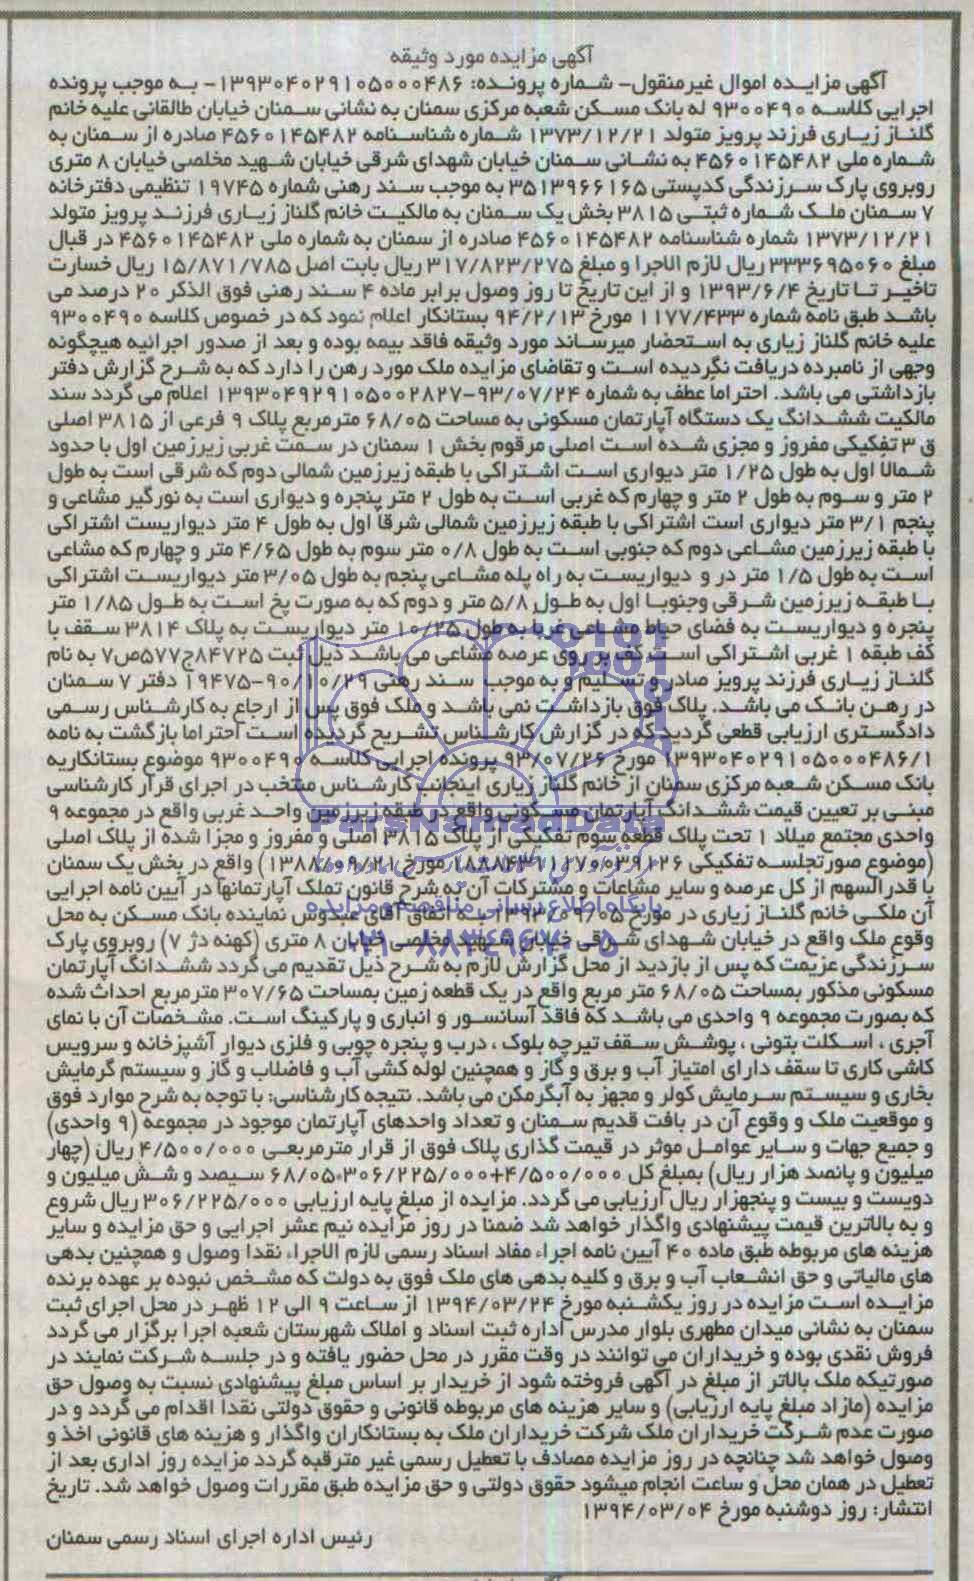 آگهی مزایده مورد وثیقه
آگهی مزایده اموال غیرمنقول- شماره پرونده: ۱۳۹۳۰۴۰۲۹۱۰۵۰۰۰۴۸۶- به موجب پرونده
اجرایی کلاسه ۹۳۰۰۴۹۰ له بانک مسکن شعبه مرکزی سمنان به نشانی سمنان خیابان طالقانی علیه خانم
گلناز زیاری فرزند پرویز متولد ۱۳۷۳/۱۲/۲۱ شماره شناسنامه ۴۵۶۰۱۴۵۴۸۲ صادره از سمنان به
شماره ملی ۴۵۶۰۱۴۵۴۸۲ به نشانی سمنان خیابان شهدای شرقی خیابان شهید مخلصی خیابان ۸ متری
روبروی پارک سرزندگی کدپستی ۳۵۱۳۹۶۶۱۶۵ به موجب سند رهنی شماره ۱۹۷۴۵ تنظیمی دفترخانه
۷ سمنان ملک شماره ثبتی ۳۸۱۵ بخش یک سمنان به مالکیت خانم گلناز زیاری فرزند پرویز متولد
۱۳۷۳/۱۲/۲۱ شماره شناسنامه ۴۵۶۰۱۴۵۴۸۲ صادره از سمنان به شماره ملی ۴۵۶۰۱۴۵۴۸۲ در قبال
مبلغ ۳۳۳۶۹۵۰۶۰ ریال لازم الاجرا و مبلغ ۳۱۷/۸۲۳/۲۷۵ ریال بابت اصل ۱۵/۸۷۱/۷۸۵ ریال خسارت
تاخیر تا تاریخ ۱۳۹۳/۶/۴ و از این تاریخ تا روز وصول برابر ماده ۴ سند رهنی فوق الذکر ۲۰ درصد می
باشد طبق نامه شماره ۱۱۷۷/۴۳۳ مورخ ۹۴/۲/۱۳ بستانکار اعلام نمود که در خصوص کلاسه ۹۳۰۰۴۹۰
علیه خانم گلناز زیاری به استحضار میرساند مورد وثیقه فاقد بیمه بوده و بعد از صدور اجرائیه هیچگونه
وجهی از نامبرده دریافت نگردیده است و تقاضای مزایده ملک مورد رهن را دارد که به شرح گزارش دفتر
بازداشتی می باشد. احتراما عطف به شماره ۹۳/۰۷/۲۴-۱۳۹۳۰۴۹۲۹۱۰۵۰۰۲۸۲۷ اعلام می گردد سند
مالکیت ششدانگ یک دستگاه آپارتمان مسکونی به مساحت ۶۸/۰۵ مترمربع پلاک ۹ فرعی از ۳۸۱۵ اصلی
ق ۳ تفکیکی مفروز و مجزی شده است اصلی مرقوم بخش ۱ سمنان در سمت غربی زیرزمین اول با حدود
شمالا اول به طول ۱/۲۵ متر دیواری است اشتراکی با طبقه زیرزمین شمالی دوم که شرقی است به طول
۲ متر و سوم به طول ۲ متر و چهارم که غربی است به طول ۲ متر پنجره و دیواری است به نورگیر مشاعی و
پنجم ۳/۱ متر دیواری است اشتراکی با طبقه زیرزمین شمالی شرقا اول به طول ۴ متر دیواریست اشتراکی
با طبقه زیرزمین مشاعی دوم که جنوبی است به طول ۰/۸ متر سوم به طول ۴/۶۵ متر و چهارم که مشاعی
است به طول ۱/۵ متر در و دیواریست به راه پله مشاعی پنجم به طول ۳/۰۵ متر دیواریست اشتراکی
با طبقه زیرزمین شرقی وجنوبا اول به طول ۵/۸ متر و دوم که به صورت پخ است به طول ۱/۸۵ متر
پنجره و دیواریست به فضای حیاط مشاعی غربا به طول ۱۰/۲۵ متر دیواریست به پلاک ۳۸۱۴ سقف با
کف طبقه ۱ غربی اشتراکی است کف بر روی عرصه مشاعی می باشد ذیل ثبت ۸۴۷۲۵ج۵۷۷ص۷ به نام
گلناز زیاری فرزند پرویز صادر و تسلیم و به موجب سند رهنی ۹۰/۱۰/۲۹-۱۹۴۷۵ دفتر ۷ سمنان
در رهن بانک می باشد. پلاک فوق بازداشت نمی باشد و ملک فوق پس از ارجاع به کارشناس رسمی
دادگستری ارزیابی قطعی گردید که در گزارش کارشناس تشریح گردیده است احتراما بازگشت به نامه
۱۳۹۳۰۴۰۲۹۱۰۵۰۰۰۴۸۶/۱ مورخ ۹۳/۰۷/۲۶ پرونده اجرایی کلاسه ۹۳۰۰۴۹۰ موضوع بستانکاریه
بانک مسکن شعبه مرکزی سمنان از خانم گلناز زیاری اینجانب کارشناس منتخب در اجرای قرار کارشناسی
مبنی بر تعیین قیمت ششدانگ آپارتمان مسکونی واقع در طبقه زیرزمین واحد غربی واقع در مجموعه ۹
واحدی مجتمع میلاد ۱ تحت پلاک قطعه سوم تفکیکی از پلاک ۳۸۱۵ اصلی و مفروز و مجزا شده از پلاک اصلی
(موضوع صورتجلسه تفکیکی مورخ ۱۳۸۸/۰۹/۲۱) واقع در بخش یک سمنان
با قدرالسهم از کل عرصه و سایر مشاعات و مشترکات آن به شرح قانون تملک آپارتمانها در آیین نامه اجرایی
آن ملکی خانم گلناز زیاری در مورخ به اتفاق آقای عبدوس نماینده بانک مسکن به محل
وقوع ملک واقع در خیابان شهدای شرقی خیابان شهید مخلصی خیابان ۸ متری (کهنه دژ ۷) روبروی پارک
سرزندگی عزیمت که پس از بازدید از محل گزارش لازم به شرح ذیل تقدیم می گردد ششدانگ آپارتمان
مسکونی مذکور بمساحت ۶۸/۰۵ متر مربع واقع در یک قطعه زمین بمساحت ۳۰۷/۶۵ مترمربع احداث شده
که بصورت مجموعه ۹ واحدی می باشد که فاقد آسانسور و انباری و پارکینگ است. مشخصات آن با نمای
آجری ، اسکلت بتونی ، پوشش سقف تیرچه بلوک ، درب و پنجره چوبی و فلزی دیوار آشپزخانه و سرویس
کاشی کاری تا سقف دارای امتیاز آب و برق و گاز و همچنین لوله کشی آب و فاضلاب و گاز و سیستم گرمایش
بخاری و سیستم سرمایش کولر و مجهز به آبگرمکن می باشد. نتیجه کارشناسی: با توجه به شرح موارد فوق
و موقعیت ملک و وقوع آن در بافت قدیم سمنان و تعداد واحدهای آپارتمان موجود در مجموعه (۹ واحدی)
و جمیع جهات و سایر عوامل موثر در قیمت گذاری پلاک فوق از قرار مترمربعی ۴/۵۰۰/۰۰۰ ریال (چهار
میلیون و پانصد هزار ریال) بمبلغ کل ۶۸/۰۵۰۳۰۶/۲۲۵/۰۰۰+۴/۵۰۰/۰۰۰ سیصد و شش میلیون و
دویست و بیست و پنجهزار ریال ارزیابی می گردد. مزایده از مبلغ پایه ارزیابی ۳۰۶/۲۲۵/۰۰۰ ریال شروع
و به بالاترین قیمت پیشنهادی واگذار خواهد شد ضمنا در روز مزایده نیم عشر اجرایی و حق مزایده و سایر
هزینه های مربوطه طبق ماده ۴۰ آیین نامه اجراء مفاد اسناد رسمی لازم الاجراء نقدا وصول و همچنین بدهی
های مالیاتی و حق انشعاب آب و برق و کلیه بدهی های ملک فوق به دولت که مشخص نبوده بر عهده برنده
مزایده است مزایده در روز یکشنبه مورخ ۱۳۹۴/۰۳/۲۴ از ساعت ۹ الی ۱۲ ظهر در محل اجرای ثبت
سمنان به نشانی میدان مطهری بلوار مدرس اداره ثبت اسناد و املاک شهرستان شعبه اجرا برگزار می گردد
فروش نقدی بوده و خریداران می توانند در وقت مقرر در محل حضور یافته و در جلسه شرکت نمایند در
صورتیکه ملک بالاتر از مبلغ در آگهی فروخته شود از خریدار بر اساس مبلغ پیشنهادی نسبت به وصول حق
مزایده (مازاد مبلغ پایه ارزیابی) و سایر هزینه های مربوطه قانونی و حقوق دولتی نقدا اقدام می گردد و در
صورت عدم شرکت خریداران ملک شرکت خریداران ملک به بستانکاران واگذار و هزینه های قانونی اخذ و
وصول خواهد شد چنانچه در روز مزایده مصادف با تعطیل رسمی غیر مترقبه گردد مزایده روز اداری بعد از
تعطیل در همان محل و ساعت انجام میشود حقوق دولتی و حق مزایده طبق مقررات وصول خواهد شد. تاریخ
انتشار: روز دوشنبه مورخ ۱۳۹۴/۰۳/۰۴
رئیس اداره اجرای اسناد رسمی سمنان